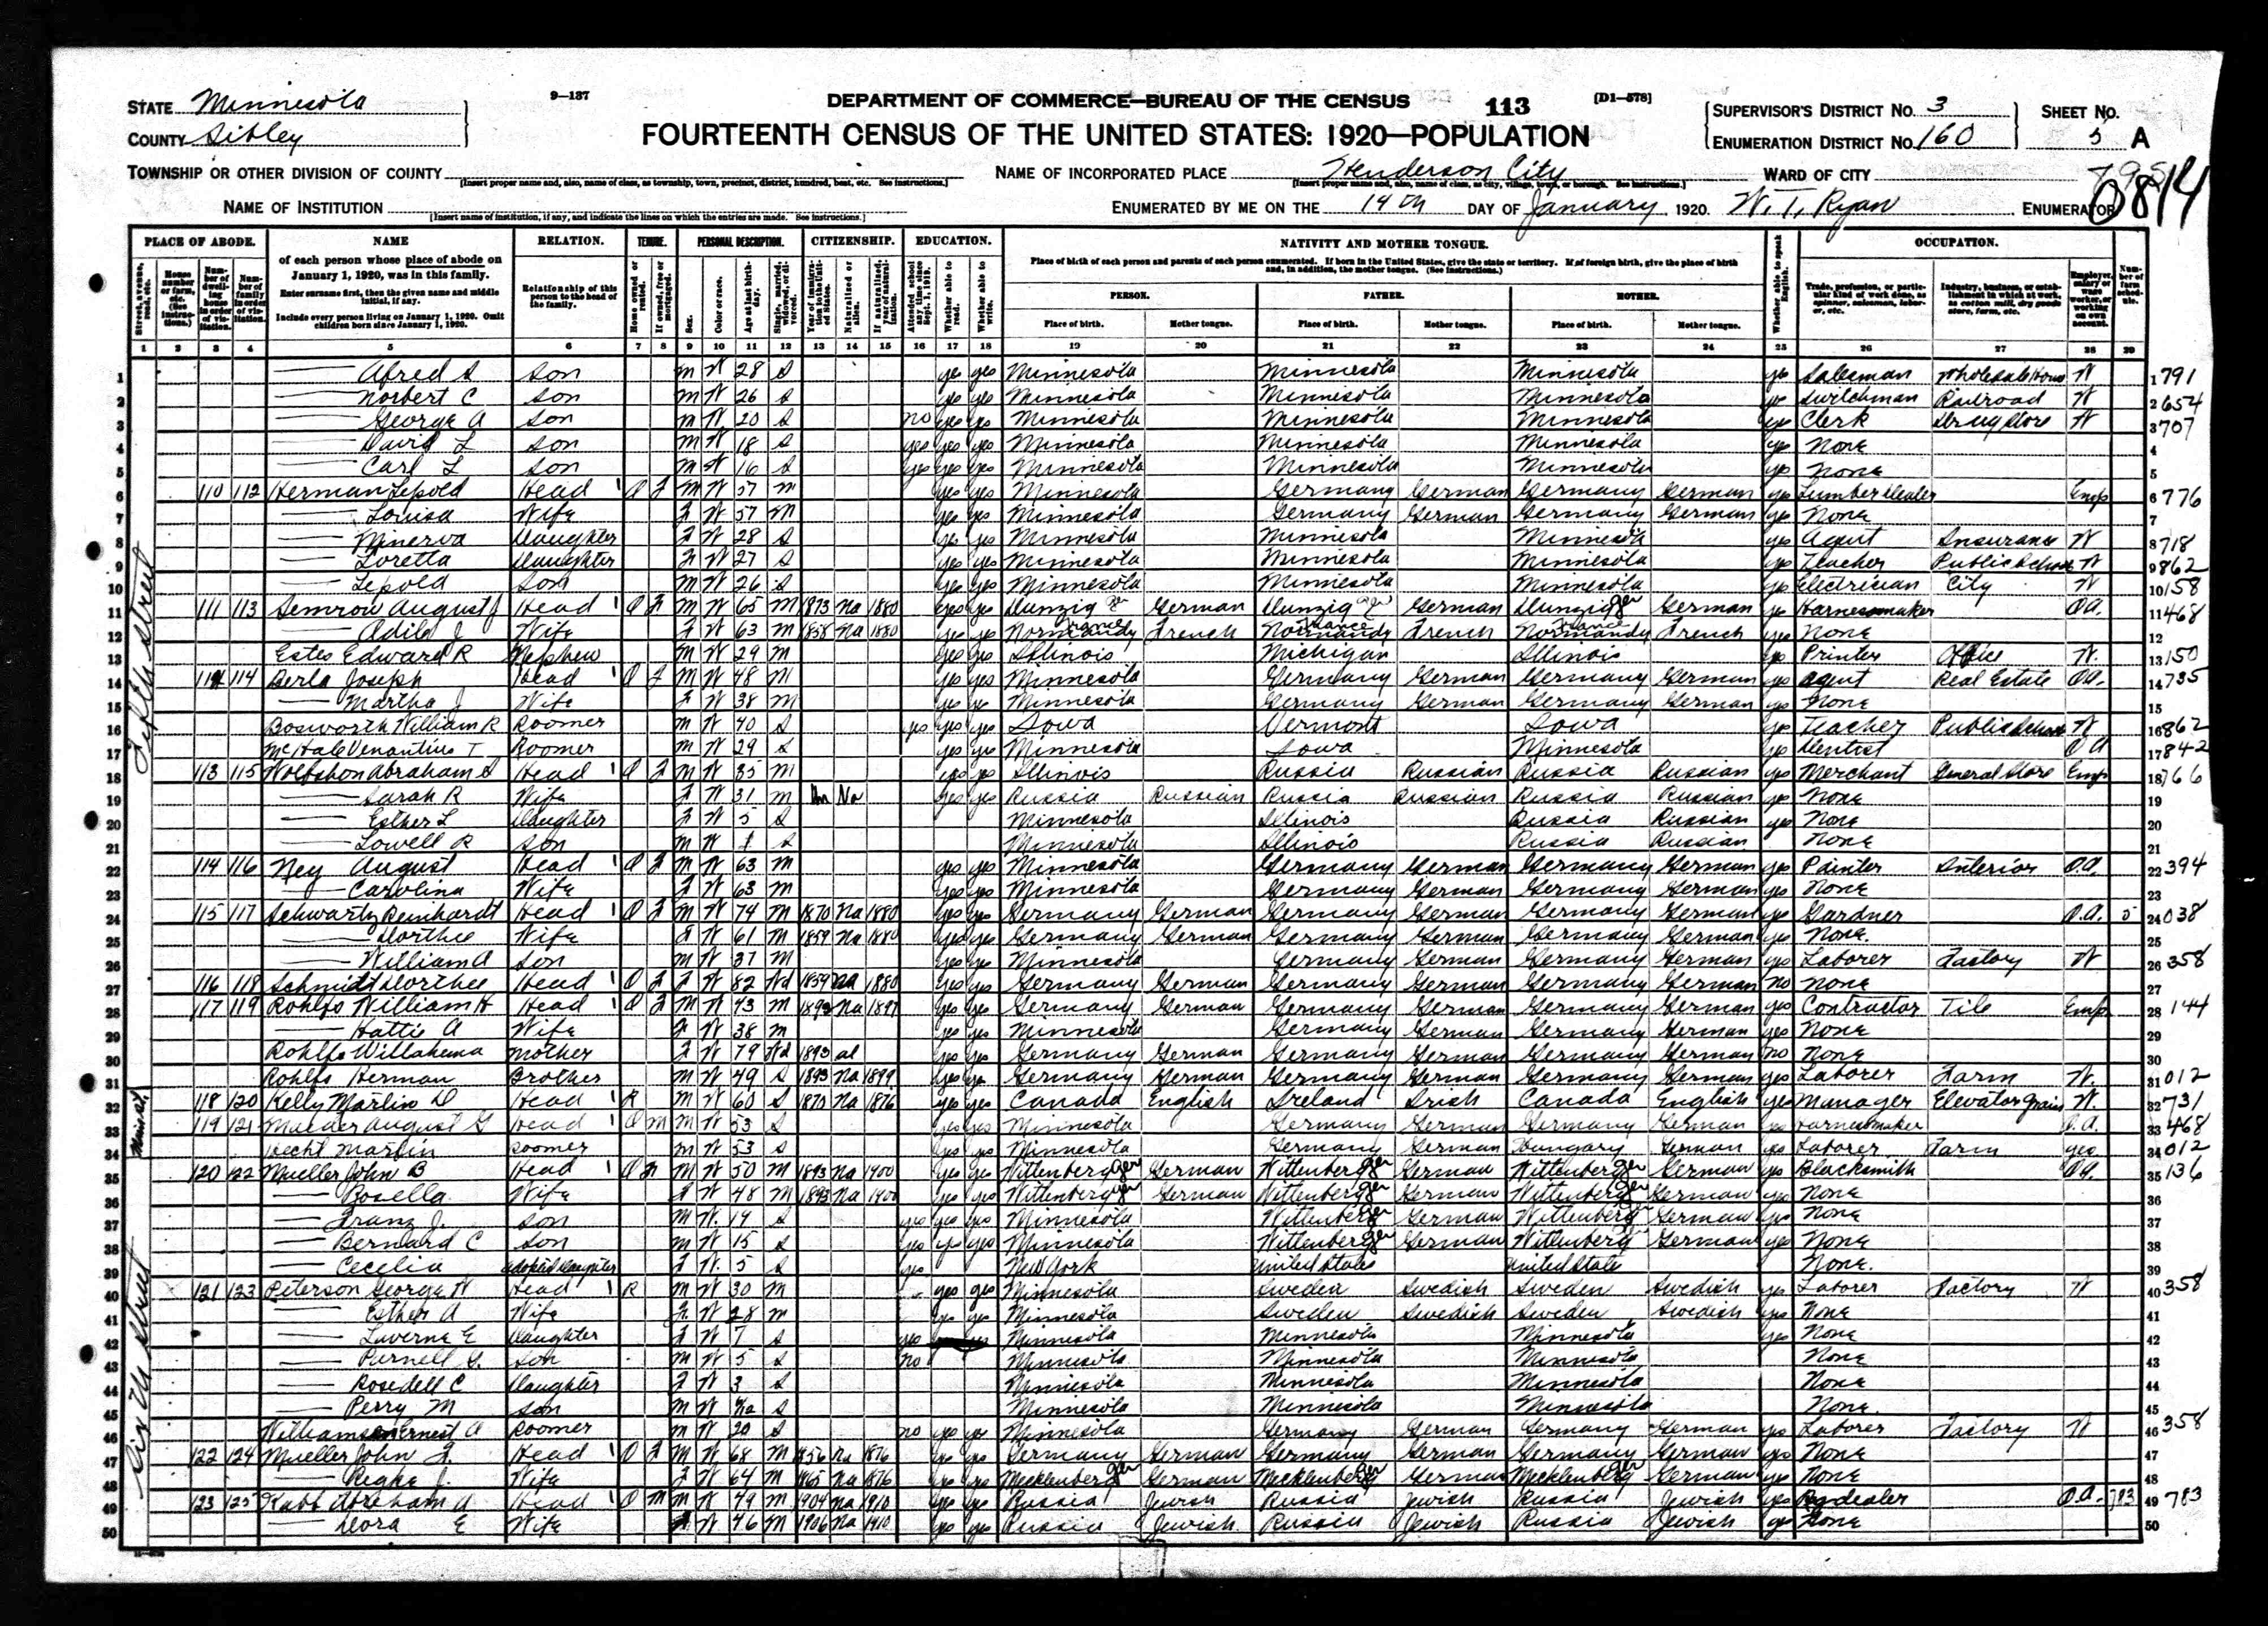 STATE Minnesota
COUNTY Sibley
9—137
DEPARTMENT OF COMMERCE—BUREAU OF THE CENSUS 113 [D1—578]
FOURTEENTH CENSUS OF THE UNITED STATES: 1920—POPULATION
SUPERVISOR'S DISTRICT NO. 3 SHEET NO.
ENUMERATION DISTRICT NO. 160 5 A
TOWNSHIP OR OTHER DIVISION OF COUNTY
[Insert proper name and, also, name of class, as township, town, precinct, district, hundred, beat, etc. See instructions.]
NAME OF INCORPORATED PLACE Henderson City
[Insert proper name and, also, name of class, as city, village, town, or borough. See instructions.]
WARD OF CITY
0814
NAME OF INSTITUTION
[Insert name of institution, if any, and indicate the lines on which the entries are made. See instructions.]
ENUMERATED BY ME ON THE 14th DAY OF January, 1920. W. T. Ryan ENUMERATOR
PLACE OF ABODE. NAME RELATION. TENURE. PERSONAL DESCRIPTION. CITIZENSHIP. EDUCATION. NATIVITY AND MOTHER TONGUE. OCCUPATION.
of each person whose place of abode on January 1, 1920, was in this family.
Enter surname first, then the given name and middle initial, if any.
Include every person living on January 1, 1920. Omit children born since January 1, 1920.
Relationship of this person to the head of the family.
Place of birth of each person and parents of each person enumerated. If born in the United States, give the state or territory. If of foreign birth, give the place of birth and, in addition, the mother tongue. (See instructions.)
PERSON. FATHER. MOTHER.
Place of birth. Mother tongue. Place of birth. Mother tongue. Place of birth. Mother tongue.
1 2 3 4 5 6 7 8 9 10 11 12 13 14 15 16 17 18 19 20 21 22 23 24 25 26 27 28 29
Fifth Street
Main St.
Sixth Street
1 Alfred S Son M W 28 S yes yes Minnesota Minnesota Minnesota yes Salesman Wholesale House W 1 791
2 Norbert C Son M W 26 S yes yes Minnesota Minnesota Minnesota yes Switchman Railroad W 2 654
3 George A Son M W 20 S no yes yes Minnesota Minnesota Minnesota yes Clerk Drug Store W 3 707
4 David L Son M W 18 S yes yes yes Minnesota Minnesota Minnesota yes None 4
5 Carl L Son M W 16 S yes yes yes Minnesota Minnesota Minnesota yes None 5
6 110 112 Herman Lepold Head 1 O F M W 57 M yes yes Minnesota Germany German Germany German yes Lumber Dealer Emp 6 776
7 Louisa Wife F W 57 M yes yes Minnesota Germany German Germany German yes None 7
8 Minerva Daughter F W 28 S yes yes Minnesota Minnesota Minnesota yes Agent Insurance W 8 718
9 Loretta Daughter F W 27 S yes yes Minnesota Minnesota Minnesota yes Teacher Public School W 9 862
10 Lepold Son M W 26 S yes yes Minnesota Minnesota Minnesota yes Electrician City W 10 158
11 111 113 Semrow August J Head 1 O F M W 65 M 1873 Na 1880 yes yes Dunzig Ger German Dunzig Ger German Dunzig Ger German yes Harnessmaker OA. 11 468
12 Adile J Wife F W 63 M 1858 Na 1880 yes yes Normandy France French Normandy France French Normandy France French yes None 12
13 Estes Edward R Nephew M W 29 M yes yes Illinois Michigan Illinois yes Printer Office W. 13 150
14 112 114 Berla Joseph Head 1 O F M W 48 M yes yes Minnesota Germany German Germany German yes Agent Real Estate OA. 14 735
15 Martha J Wife F W 38 M yes yes Minnesota Germany German Germany German yes None 15
16 Bosworth William R Roomer M W 40 S yes yes yes Iowa Vermont Iowa yes Teacher Public School W 16 862
17 McHale Venantius T Roomer M W 29 S yes yes Minnesota Iowa Minnesota yes Dentist OA 17 842
18 113 115 Wolfshon Abraham S Head 1 O F M W 35 M yes yes Illinois Russia Russian Russia Russian yes Merchant General Store Emp 18 766
19 Sarah R Wife F W 31 M Un Na yes yes Russia Russian Russia Russian Russia Russian yes None 19
20 Esther L Daughter F W 5 S Minnesota Illinois Russia Russian yes None 20
21 Lowell R Son M W 1 S Minnesota Illinois Russia Russian None 21
22 114 116 Ney August Head 1 O F M W 63 M yes yes Minnesota Germany German Germany German yes Painter Interior O.A. 22 394
23 Carolina Wife F W 63 M yes yes Minnesota Germany German Germany German yes None 23
24 115 117 Schwartz Reinhardt Head 1 O F M W 74 M 1870 Na 1880 yes yes Germany German Germany German Germany German yes Gardner O.A. 5 24 038
25 Dorthee Wife F W 61 M 1859 Na 1880 yes yes Germany German Germany German Germany German yes None. 25
26 William A Son M W 37 M yes yes Minnesota Germany German Germany German yes Laborer Factory W 26 358
27 116 118 Schmidt Dorthee Head 1 O F F W 82 Wd 1854 Na 1880 yes yes Germany German Germany German Germany German No None 27
28 117 119 Rohlfs William H Head 1 O F M W 43 M 1893 Na 1897 yes yes Germany German Germany German Germany German yes Contractor Tile Emp 28 144
29 Hattie A Wife F W 38 M yes yes Minnesota Germany German Germany German yes None 29
30 Rohlfs Willahema Mother F W 79 Wd 1893 al yes yes Germany German Germany German Germany German no None 30
31 Rohlfs Herman Brother M W 49 S 1893 Na 1899 yes yes Germany German Germany German Germany German yes Laborer Farm W. 31 012
32 118 120 Kelly Martin D Head 1 R M W 60 S 1870 Na 1876 yes yes Canada English Ireland Irish Canada English yes Manager Elevator Grain W. 32 731
33 119 121 August G Head 1 O M M W 53 S yes yes Minnesota Germany German Germany German yes Harnessmaker O.A. 33 468
34 Hecht Martin Roomer M W 53 S yes yes Minnesota Germany German Hungary German yes Laborer Farm yes 34 012
35 120 122 Mueller John B Head 1 O F M W 50 M 1893 Na 1900 yes yes Wittenberg Ger German Wittenberg Ger German Wittenberg Ger German yes Blacksmith OA. 35 136
36 Rosella Wife F W 48 M 1893 Na 1900 yes yes Wittenberg Ger German Wittenberg Ger German Wittenberg Ger German yes None 36
37 Franz J. Son M W. 19 S yes yes yes Minnesota Wittenberg Ger German Wittenberg Ger German yes None 37
38 Bernard C Son M W 15 S yes yes yes Minnesota Wittenberg Ger German Wittenberg Ger German yes None 38
39 Cecelia Adopted Daughter F W. 5 S yes New York United States United States None. 39
40 121 123 Peterson George W Head 1 R M W 30 M yes yes Minnesota Sweden Swedish Sweden Swedish yes Laborer Factory W 40 358
41 Esther A Wife F. W 28 M yes yes Minnesota Sweden Swedish Sweden Swedish yes None 41
42 Laverne E Daughter F W 7 S yes Minnesota Minnesota Minnesota yes None 42
43 Purnell G. Son M W 5 S no Minnesota Minnesota Minnesota None 43
44 Rosedell C Daughter F W 3 S Minnesota Minnesota Minnesota None 44
45 Perry M Son M W S Minnesota Minnesota Minnesota None. 45
46 Williamson Ernest A Roomer M W 20 S no yes yes Minnesota Germany German Germany German yes Laborer Factory W 46 358
47 122 124 Mueller John F. Head 1 O F M W 68 M 1856 Na 1876 yes yes Germany German Germany German Germany German yes None 47
48 J. Wife F W 64 M 1865 Na 1876 yes yes Mecklenberg Ger German Mecklenberg Ger German Mecklenberg Ger German yes None 48
49 123 125 Abreham A Head 1 O M M W 49 M 1904 Na 1910 yes yes Russia Jewish Russia Jewish Russia Jewish yes O.A. 783 49 783
50 Dora E Wife F W 46 M 1906 Na 1910 yes yes Russia Jewish Russia Jewish Russia Jewish yes None 50